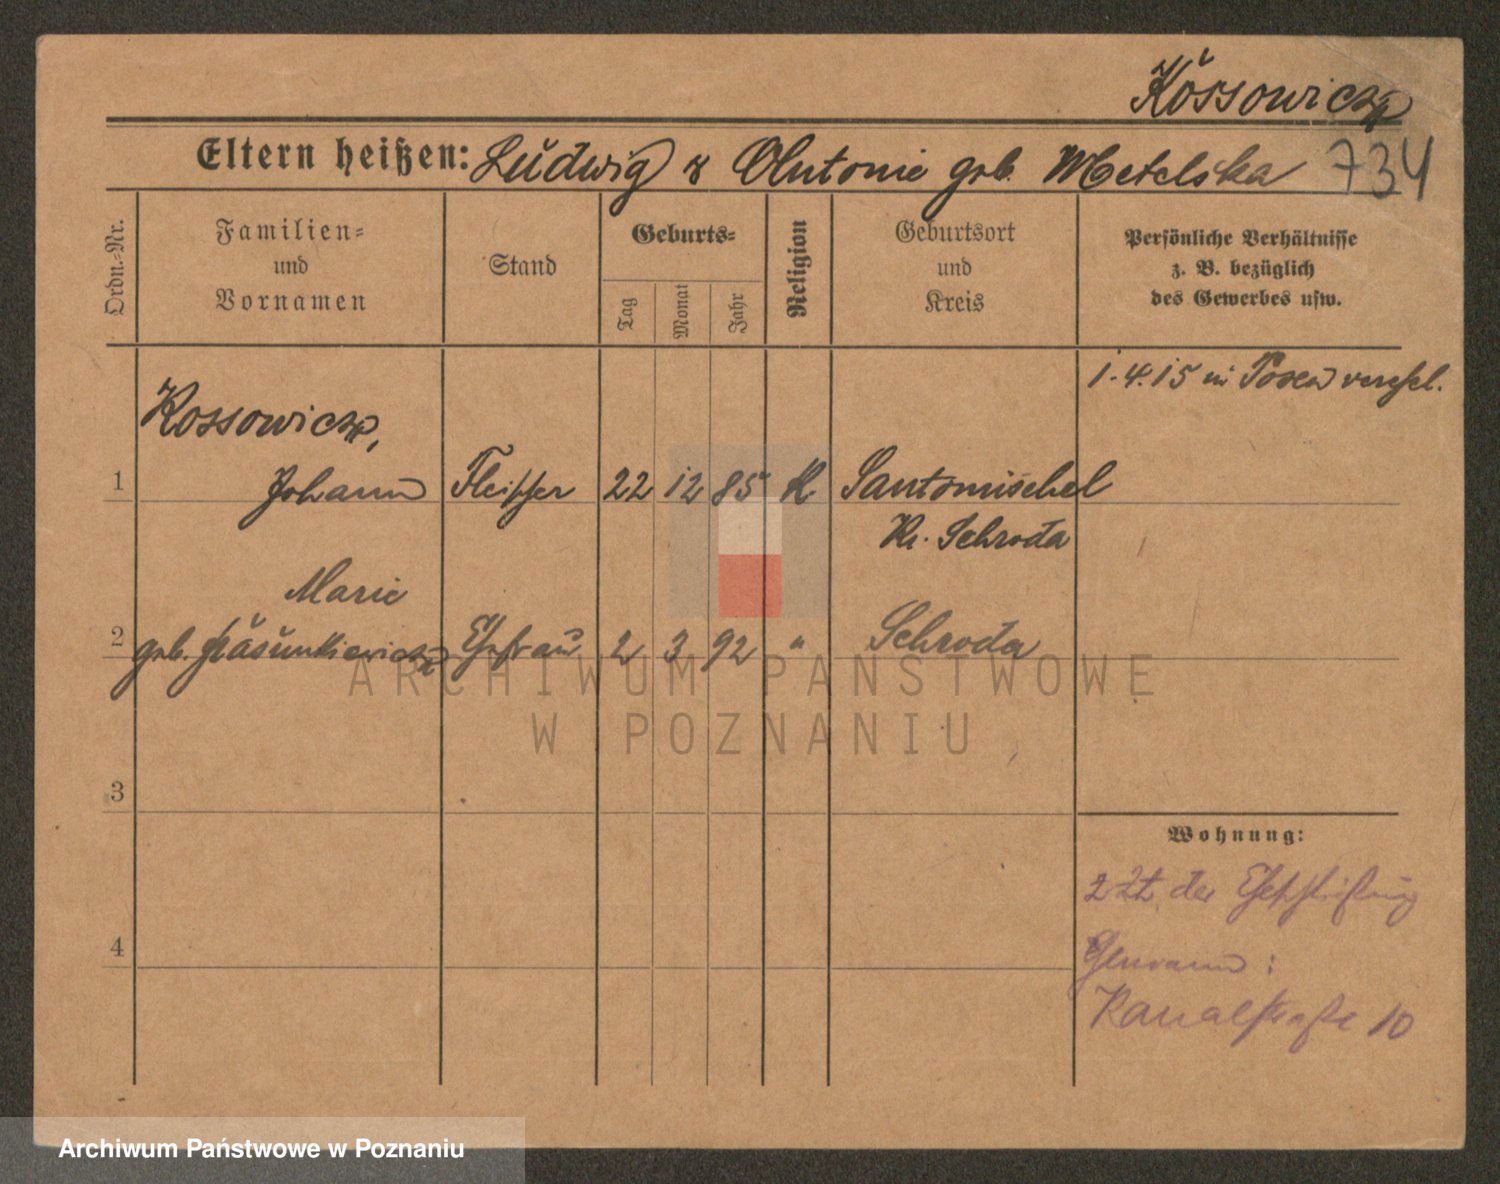 Kossowicz
Eltern heißen: Ludwig & Antonie geb. Metelska 734
Ordn.-Nr.
Familien-
und
Vornamen
Stand
Geburts-
Tag
Monat
Jahr
Religion
Geburtsort
und
Kreis
Persönliche Verhältnisse
z. B. bezüglich
des Gewerbes usw.
1.4.15 in Posen verehel.
Kossowicz,
1 Johann Fleischer 22 12 85 k. Santomischel
Kr. Schroda
Marie
2 geb. Ehefrau 2 3 92 " Schroda
ARCHIWUM PAŃSTWOWE
W POZNANIU
3
Wohnung:
z. Zt. der Eheschließung
4
Kanalstraße 10
Archiwum Państwowe w Poznaniu